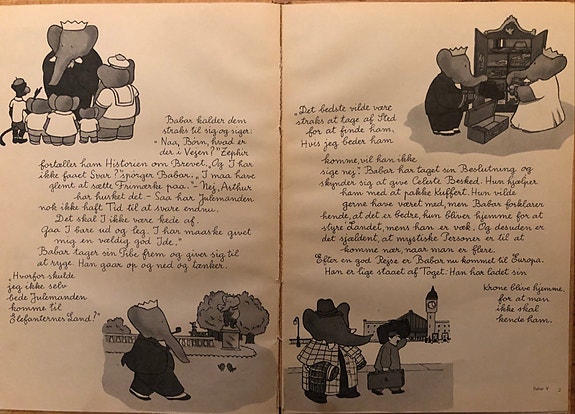 Babar kalder dem
straks til sig og siger:
- Naa, Børn, hvad er
der i Vejen?" Zephir
fortæller ham Historien om Brevet. „Og I har
ikke faaet Svar?" spørger Babar. „I maa have
glemt at sætte Frimærke paa." - „Nej, Arthur
har husket det - Saa har Julemanden
nok ikke haft Tid til at svare endnu.
Det skal I ikke være kede af.
Gaa I bare ud og leg. I har maaske givet
mig en vældig god Ide."
Babar tager sin Pibe frem og giver sig til
at ryge. Han gaar op og ned og tænker.
„Hvorfor skulde
jeg ikke selv
bede Julemanden
komme til
Elefanternes Land?"
„Det bedste vilde være
straks at tage af Sted
for at finde ham.
Hvis jeg beder ham
komme, vil han ikke
sige nej." Babar har taget sin Beslutning og
skynder sig at give Celeste Besked. Hun hjælper
ham med at pakke Kuffert. Hun vilde
gerne have været med, men Babar forklarer
hende, at det er bedre, hun bliver hjemme for at
styre Landet, mens han er væk. Og desuden er
det sjældent, at mystiske Personer er til at
komme nær, naar man er flere.
Efter en god Rejse er Babar nu kommet til Europa.
Han er lige staaet af Toget. Han har ladet sin
Krone blive hjemme,
for at man
ikke skal
kende ham.
Babar V 2